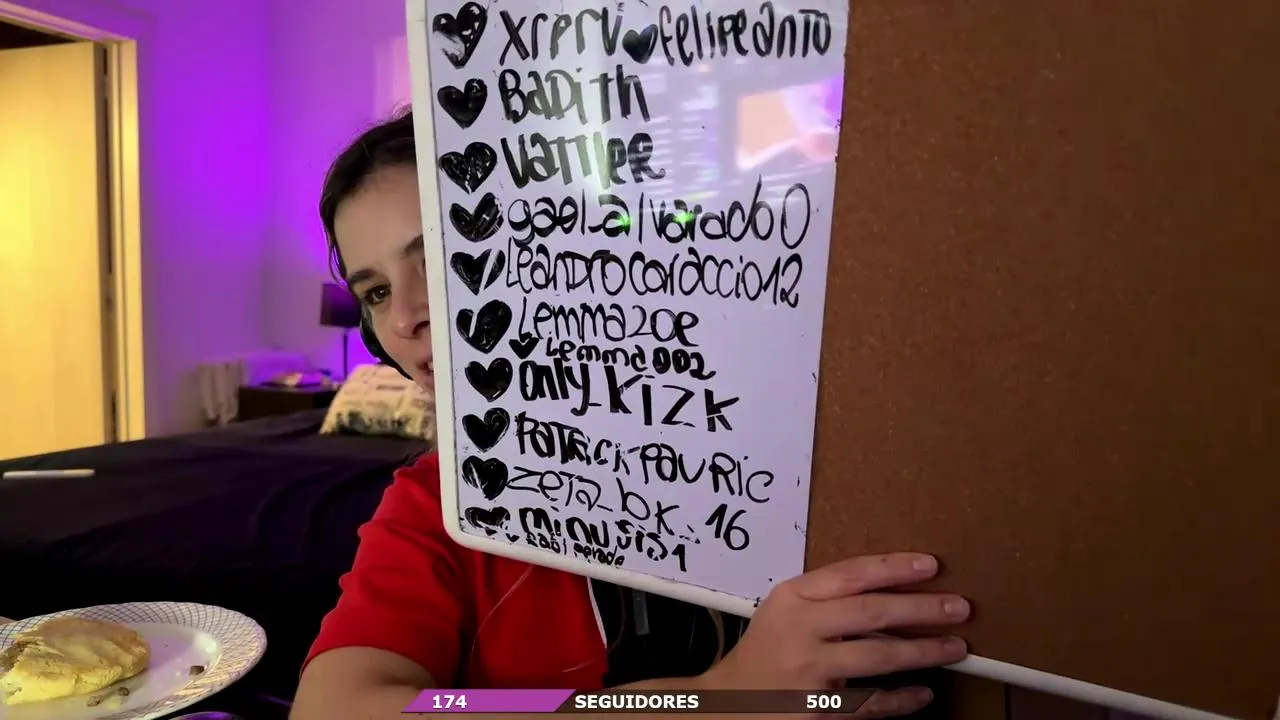 xrerv felipeanto
Badith
Vattler
gael_alvarado0
Leandrocoraccio12
Lemmazoe
Lemma002
only_kizk
Patrickpauric
zeta_bk_16
174 SEGUIDORES 500